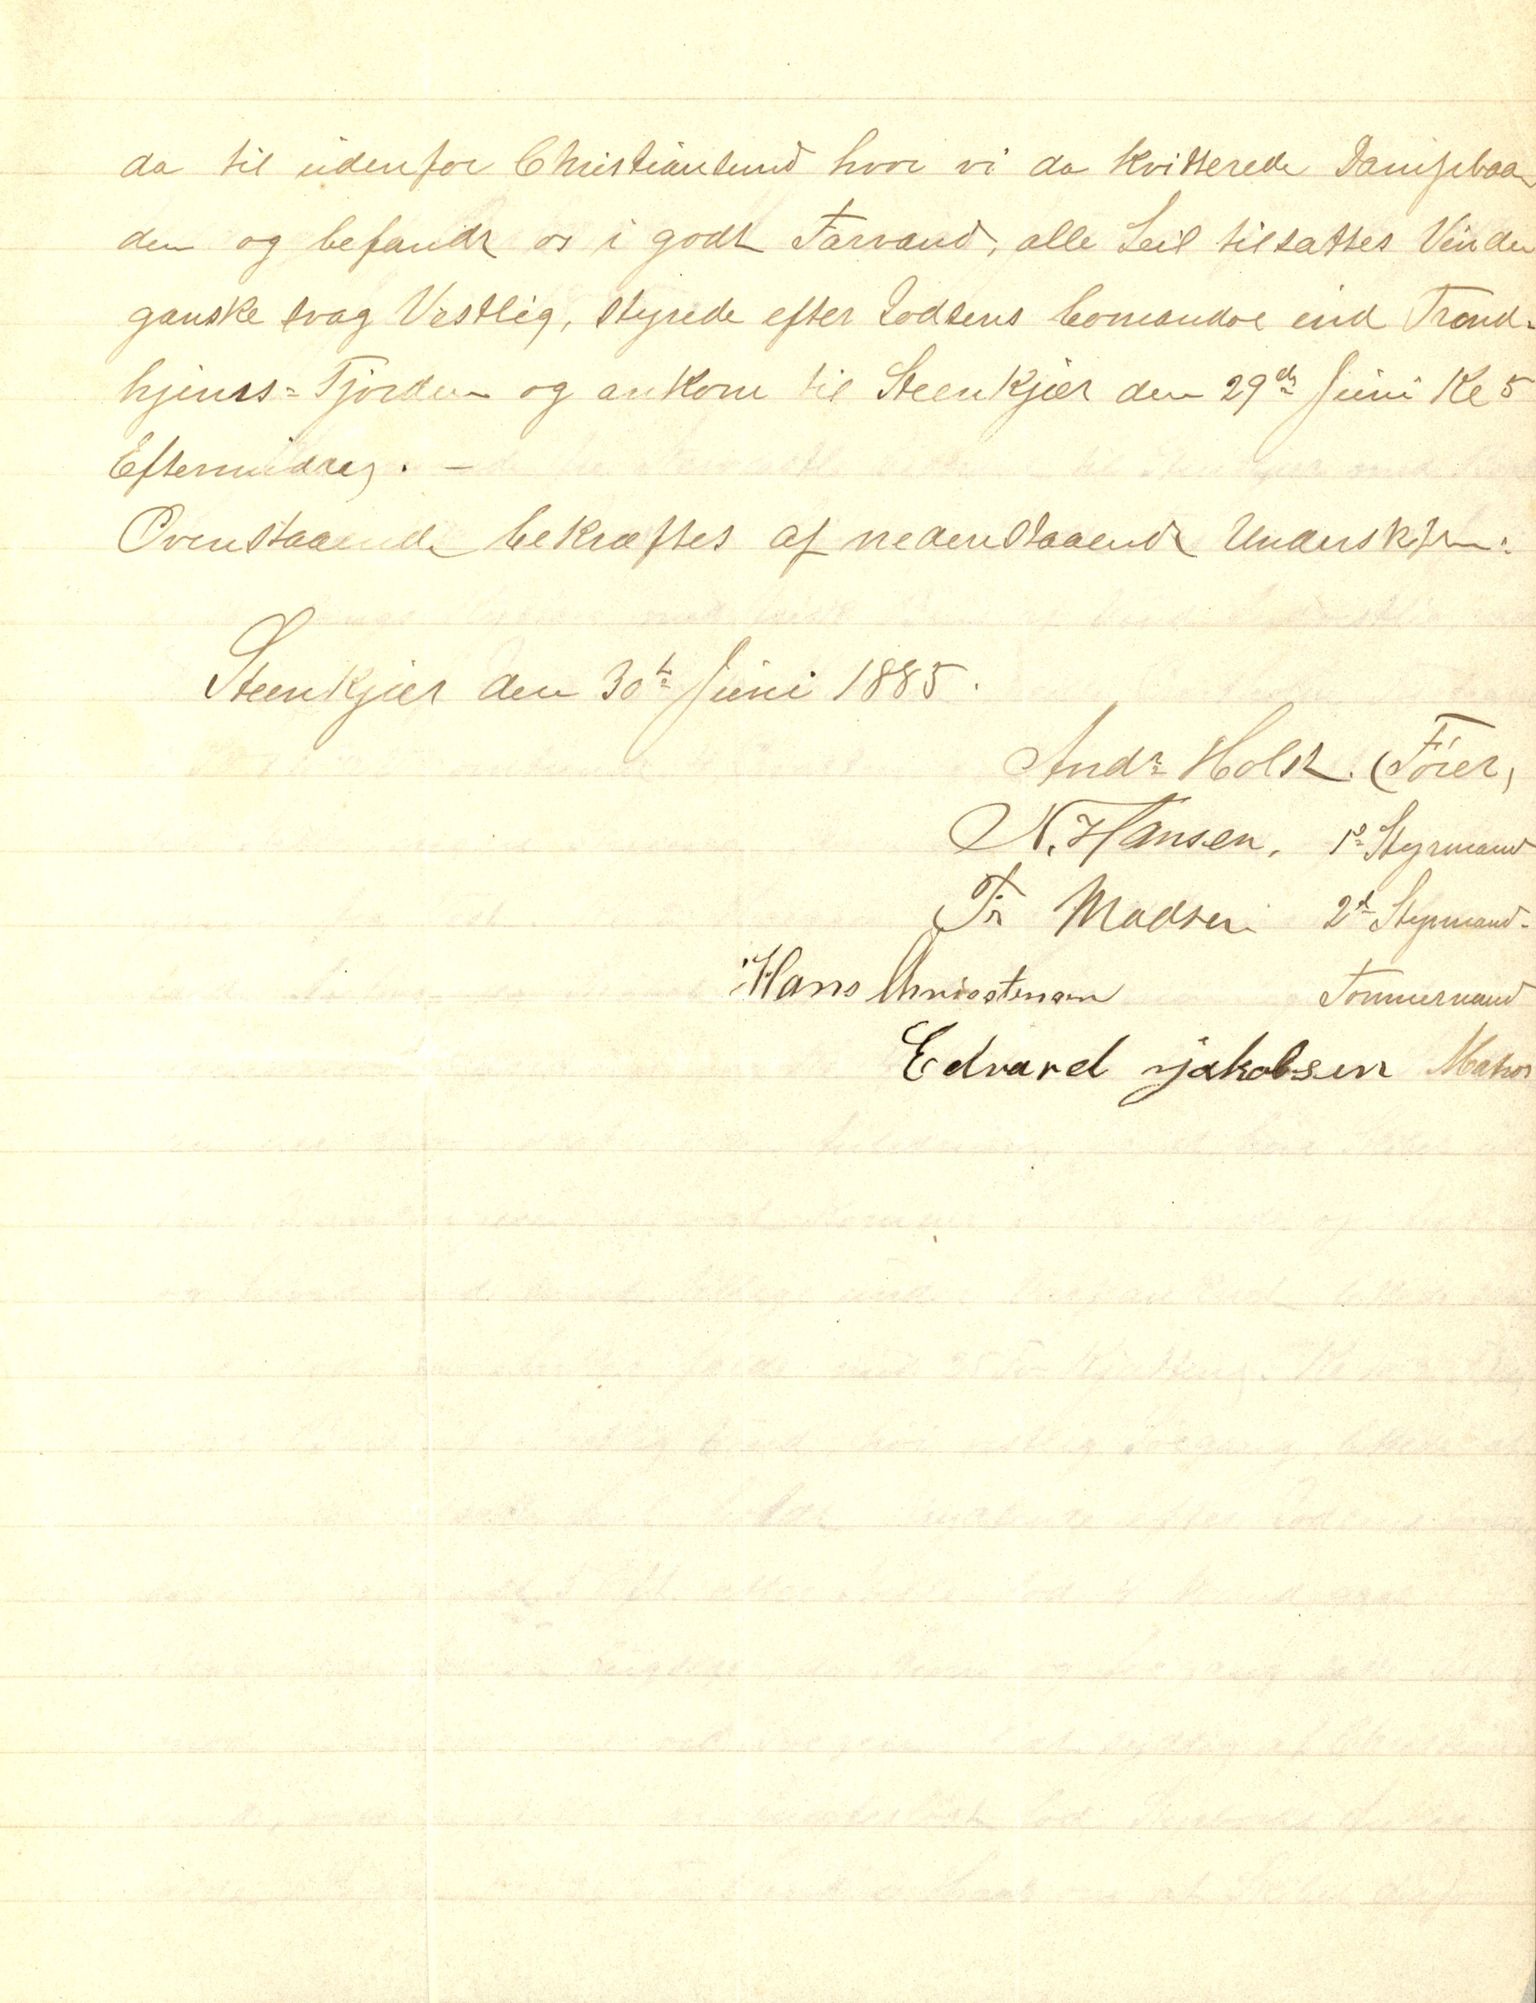 da til udenfor Christiansund hvor vi da kvitterede Dampbaa-
den og befandt os i godt Farvand, alle Seil tilsattes Vinden
ganske svag Vestlig, styrede efter Lodsens Comandoe ind Trond-
hjems=Fjorden og ankom til Steenkjær den 29de Juni Kl 5
Eftermidag. -
Ovenstaaende bekræftes af nedenstaaende
Steenkjær den 30te Juni 1885.
Andr Holst. (Förer,
N. Hansen. 1e Styrmand
Fr Madsen 2t Styrmand-
Hans Christensen Tömmermand
Edvard Jakobsen Matros